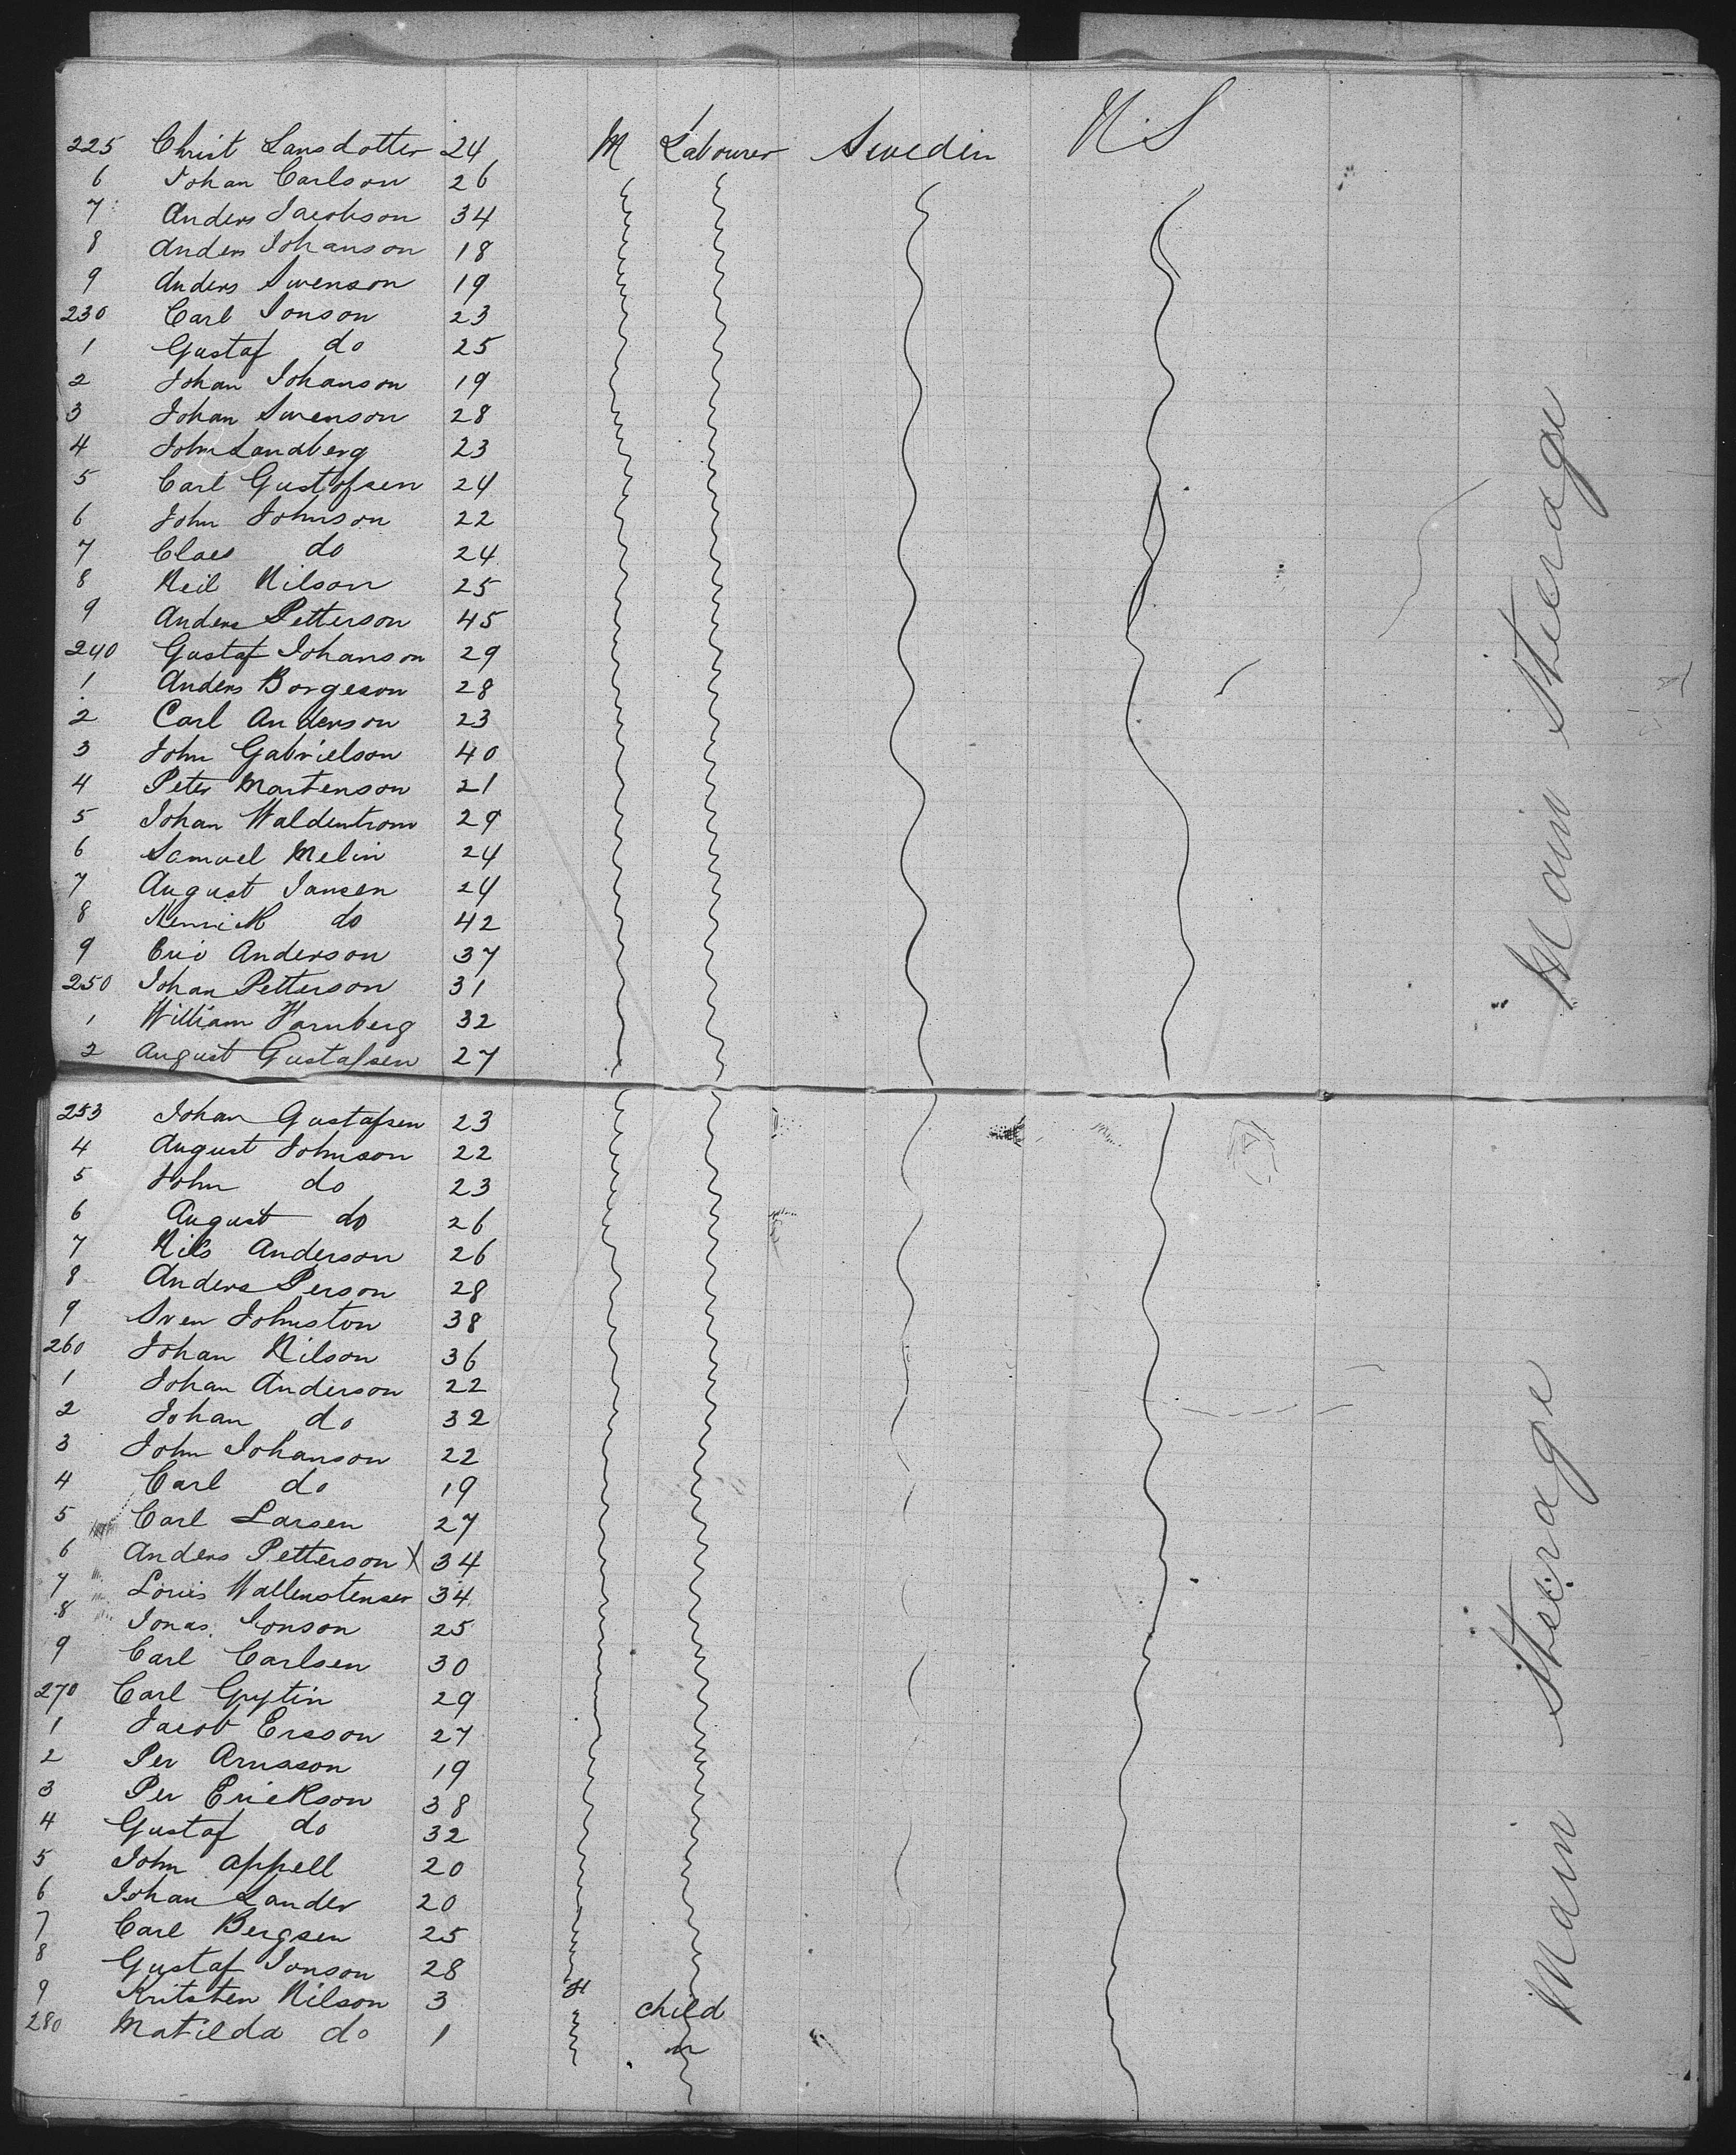 225 Christ Larsdotter 24 M Labourer Sweden U.S
6 Johan Carlson 26
7 Anders Jacobson 34
8 Anders Johanson 18
9 Anders Swenson 19
230 Carl Jonson 23
1 Gustaf do 25
2 Johan Johanson 19
3 Johan Swenson 28
4 John Landberg 23
5 Carl Gustofsen 24
6 John Johnson 22
7 Claes do 24
8 Neil Nilson 25
9 Anders Petterson 45
240 Gustaf Johanson 29
1 Anders Borgeson 28
2 Carl Anderson 23
3 John Gabrielson 40
4 Peter Martenson 21
5 Johan Waldentrom 29
6 Samuel Melin 24
7 August Jansen 24
8 Henrick do 42
9 Eric Anderson 37
250 Johan Petterson 31
1 William Farnberg 32
2 August Gustafsen 27
Main Steerage
253 Johan Gustafsen 23
4 August Johnson 22
5 John do 23
6 August do 26
7 Nils Anderson 26
8 Anders Person 28
9 Sven Johnston 38
260 Johan Nilson 36
1 Johan Anderson 22
2 Johan do 32
3 John Johanson 22
4 Carl do 19
5 Carl Larsen 27
6 Anders Petterson X 34
7 Louis Wallenstenser 34
8 Jonas Jonson 25
9 Carl Carlsen 30
270 Carl 29
1 Jacob Ersson 27
2 Per Arnsson 19
3 Per Erickson 38
4 Gustaf do 32
5 John Appell 20
6 Johan Lander 20
7 Carl Bergsen 25
8 Gustaf Jonson 28
9 Kritsten Nilson 3 F child
280 Matilda do 1
Main Steerage